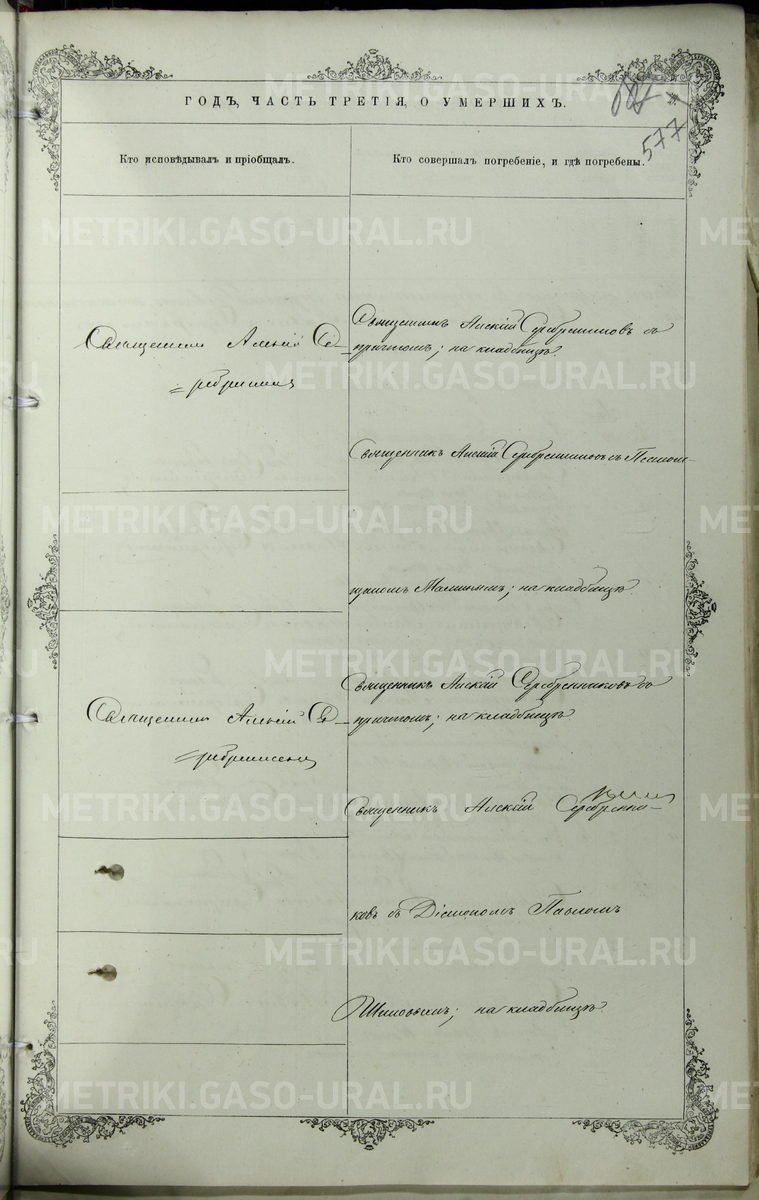 ГОДЪ, ЧАСТЬ ТРЕТІЯ, О УМЕРШИХЪ.
577
Кто исповѣдывалъ и пріобщалъ.
Кто совершалъ погребеніе, и гдѣ погребены.
METRIKI.GASO-URAL.RU
Священникъ Алексій Се-
=ребрениковъ
Священникъ Алексій Серебрениковъ съ
причтомъ; на кладбищѣ.
Священникъ Алексій Серебрениковъ съ
; на кладбищѣ.
Священникъ Алексій Се-
=ребрениковъ
Священникъ Алексій Серебренниковъ съ
причтомъ; на кладбищѣ
Священникъ Алексій Серебренни-
ковъ съ Діакономъ Павломъ
; на кладбищѣ.